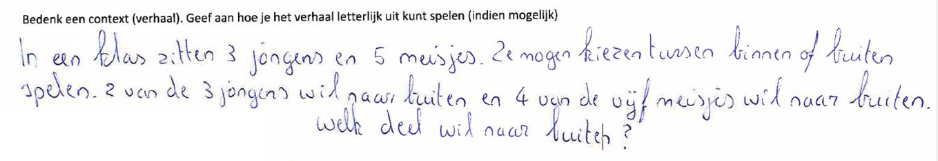 Bedenk een context (verhaal). Geef aan hoe je het verhaal letterlijk uit kunt spelen (indien mogelijk)
In een klas zitten 3 jongens en 5 meisjes. Ze mogen kiezen tussen binnen of buiten
spelen. 2 van de 3 jongens wil naar buiten en 4 van de vijf meisjes wil naar buiten.
welk deel wil naar buiten?